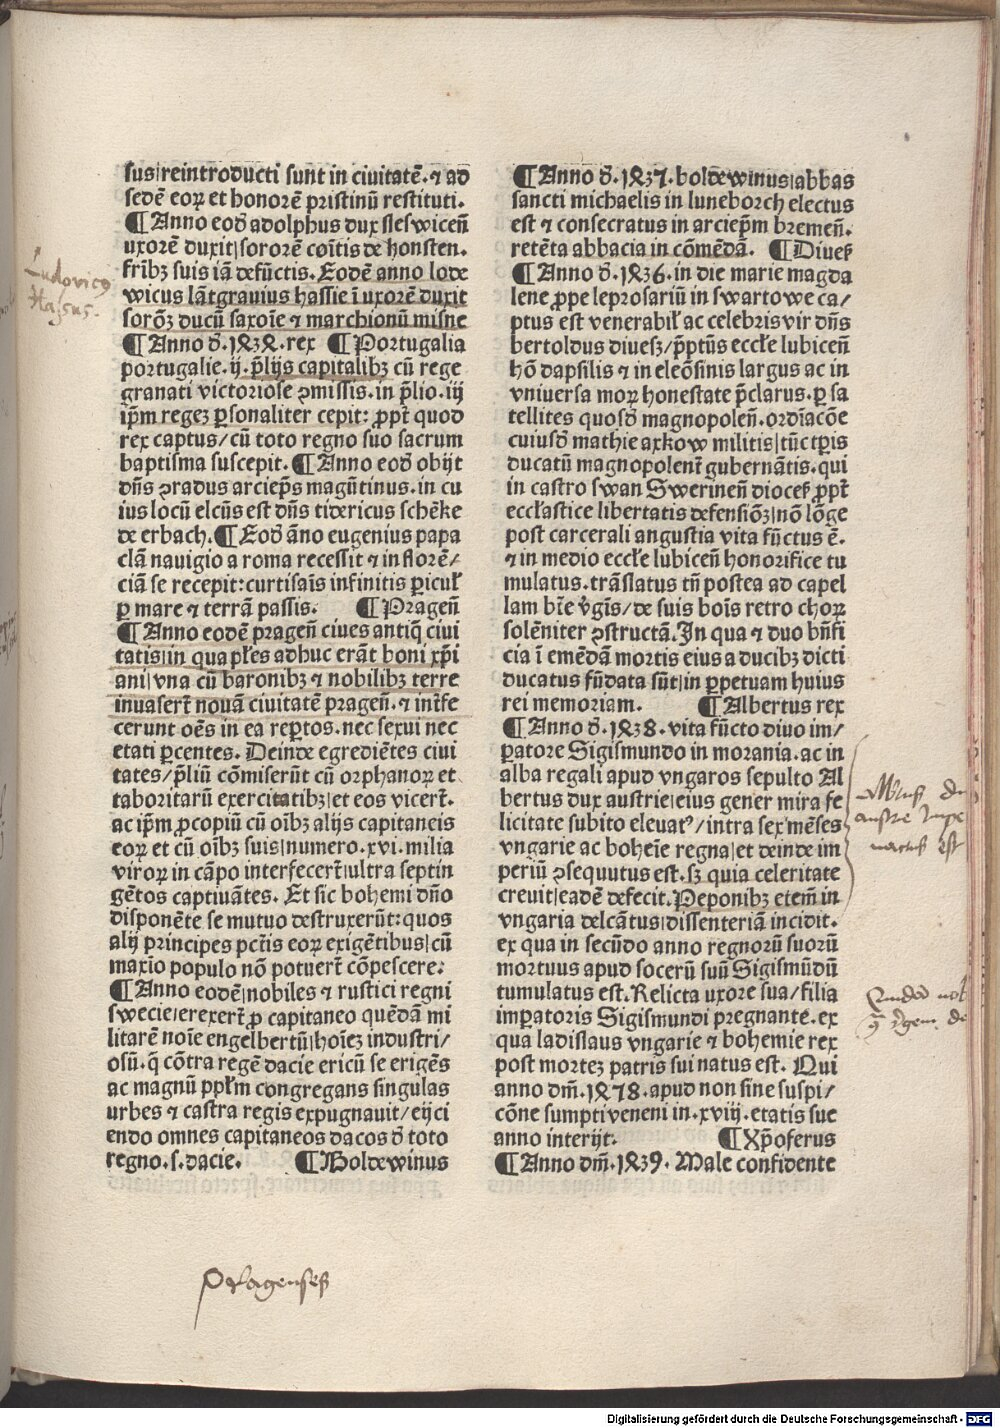 sus|reintroducti sunt in ciuitatē. ⁊ ad
sedē eoꝝ et honorē pristinū restituti.
¶Anno eod̄ adolphus dux sleswiceñ
uxorē duxit|sororē coı̄tis de honsten.
frı̄bꝫ suis iā defūctis. Eodē anno lode
wicus lātgrauius hassie ı̄ uxorē duxit
sorōꝫ ducū saxoı̄e ⁊ marchionū misne
¶Anno d̄. 1434. rex ¶Portugalia
portugalie. ij. p̄lijs capitalibꝫ cū rege
granati victoriose ꝯmissis. in p̄lio. iij
ip̄m regeꝫ ꝑsonaliter cepit: ꝓpt̄ quod
rex captus/ cū toto regno suo sacrum
baptisma suscepit. ¶Anno eod̄ obijt
dn̄s ꝯradus arciep̄s magūtinus. in cu
ius locū elcūs est dn̄s tidericus schēke
de erbach. ¶Eod̄ āno eugenius papa
clā nauigio a roma recessit ⁊ in florē/
ciā se recepit: curtisaı̄s infinitis ꝑicuł
ꝑ mare ⁊ terrā passis. ¶Prageñ
¶Anno eodē prageñ ciues antiq̄ ciui
tatis|in qua p̄les adhuc erāt boni xp̄i
ani|vna cū baronibꝫ ⁊ nobilibꝫ terre
inuasert̄ nouā ciuitatē prageñ. ⁊ int̄fe
cerunt oēs in ea reꝑtos. nec sexui nec
etati ꝑcentes. Deinde egrediētes ciui
tates/ p̄liū cōmiserūt cū orphanoꝝ et
taboritarū exercitatibꝫ|et eos vicert̄.
ac ip̄m ꝓcopiū cū oı̄bꝫ alijs capitaneis
eoꝝ et cū oı̄bꝫ suis|numero. xvi. milia
viroꝝ in cāpo interfecert̄|ultra septin
gētos captiuātes. Et sic bohemi dn̄o
disponēte se mutuo destruxerūt: quos
alij principes pct̄is eoꝝ exigētibus|cū
maxı̄o populo nō potuert̄ cōpescere:
¶Anno eodē|nobiles ⁊ rustici regni
swecie|erexert̄ ꝓ capitaneo quēdā mi
litarē noı̄e engelbertū|hoı̄eꝫ industri/
osū. q̄ cōtra regē dacie ericū se erigēs
ac magnū pp̄łm congregans singulas
urbes ⁊ castra regis expugnauit/ eijci
endo omnes capitaneos dacos d̄ toto
regno. s. dacie. ¶Boldewinus
¶Anno d̄. 1437. boldēwinus|abbas
sancti michaelis in luneborch electus
est ⁊ consecratus in arciep̄m bremeñ.
retēta abbacia in cōmēdā. ¶Diueß
¶Anno d̄. 1436. in die marie magda
lene ꝓpe leprosariū in swartowe ca/
ptus est venerabił ac celebris vir dn̄s
bertoldus diuesꝫ/ p̄ptūs eccłe lubiceñ
hō dapsilis ⁊ in eleōsinis largus ac in
vniuersa moꝝ honestate p̄clarus. ꝑ sa
tellites quosd̄ magnopoleñ. ordı̄acōe
cuiusd̄ mathie axkow militis|tūc tꝑis
ducatū magnopolent̄ gubernātis. qui
in castro swan Swerineñ dioceß ꝓpt̄
eccłastice libertatis defensiōꝫ|nō lōge
post carcerali angustia vita fūctus ē.
⁊ in medio eccłe lubiceñ honorifice tu
mulatus. trāslatus tn̄ postea ad capel
lam bt̄e v̄gı̄s/ de suis boı̄s retro choꝝ
solēniter ꝯstructā. In qua ⁊ duo bn̄fi
cia ı̄ emēdā mortis eius a ducibꝫ dicti
ducatus fūdata sūt|in ꝑpetuam huius
rei memoriam. ¶Albertus rex
¶Anno d̄. 1438. vita fūcto diuo im/
ꝑatore Sigismundo in morania. ac in
alba regali apud vngaros sepulto Al
bertus dux austrie|eius gener mira fe
licitate subito eleuatꝰ/ intra sex mēses
vngarie ac boheı̄e regna|et deinde im
periū ꝯsequutus est. sꝫ quia celeritate
creuit|eadē defecit. Peponibꝫ etem̄ in
vngaria delcātus|dissenteriā incidit.
ex qua in secūdo anno regnorū suorū
mortuus apud socerū suū Sigismūdū
tumulatus est. Relicta uxore sua/ filia
imꝑatoris Sigismundi pregnante. ex
qua ladislaus vngarie ⁊ bohemie rex
post morteꝫ patris sui natus est. Qui
anno dm̄. 1478. apud non sine suspi/
cōne sumpti veneni in. xviij. etatis sue
anno interijt. ¶Xp̄oferus
¶Anno dm̄. 1439. Male confidente
Ludovicus
Hassus.
Pragenses
Digitalisierung gefördert durch die Deutsche Forschungsgemeinschaft - DFG